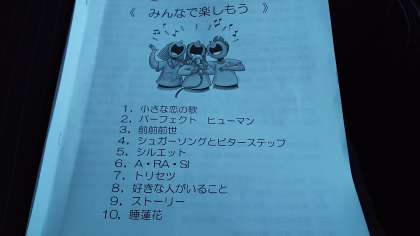 《 みんなで楽しもう 》
1．小さな恋の歌
2．パーフェクト ヒューマン
3．前前前世
4．シュガーソングとビターステップ
5．シルエット
6．A・RA・SI
7．トリセツ
8．好きな人がいること
9．ストーリー
10．睡蓮花